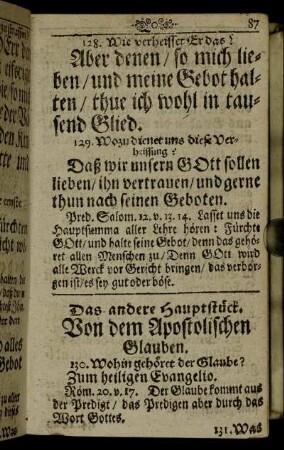 87
128. Wie verheisset Er das?
Aber denen/ so mich lie-
ben/ und meine Gebot hal-
ten/ thue ich wohl in tau-
send Glied.
129. Wozu dienet uns diese Ver-
heissung?
Daß wir unsern GOtt sollen
lieben/ ihn vertrauen/ und gerne
thun nach seinen Geboten.
Pred. Salom. 12. v. 13. 14. Lasset uns die
Hauptsumma aller Lehre hören: Fürchte
GOtt/ und halte seine Gebot/ denn das gehö-
ret allen Menschen zu/ Denn GOtt wird
alle Werck vor Gericht bringen/ das verbor-
gen ist/ es sey gut oder böse.
Das andere Hauptstück.
Von dem Apostolischen
Glauben.
130. Wohin gehöret der Glaube?
Zum heiligen Evangelio.
Röm. 20. v. 17. Der Glaube kommt aus
der Predigt/ das Predigen aber durch das
Wort Gottes.
131. Was